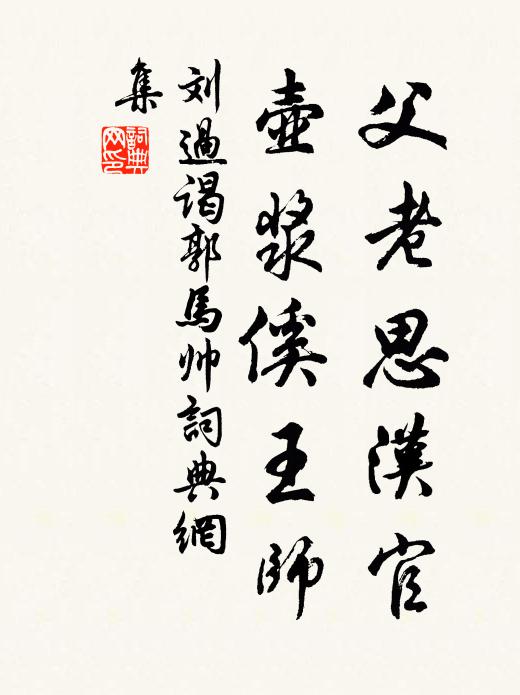 父老思漢官
壺漿傒王師
刘過謁郭馬帅詞典網
集
詞典網印